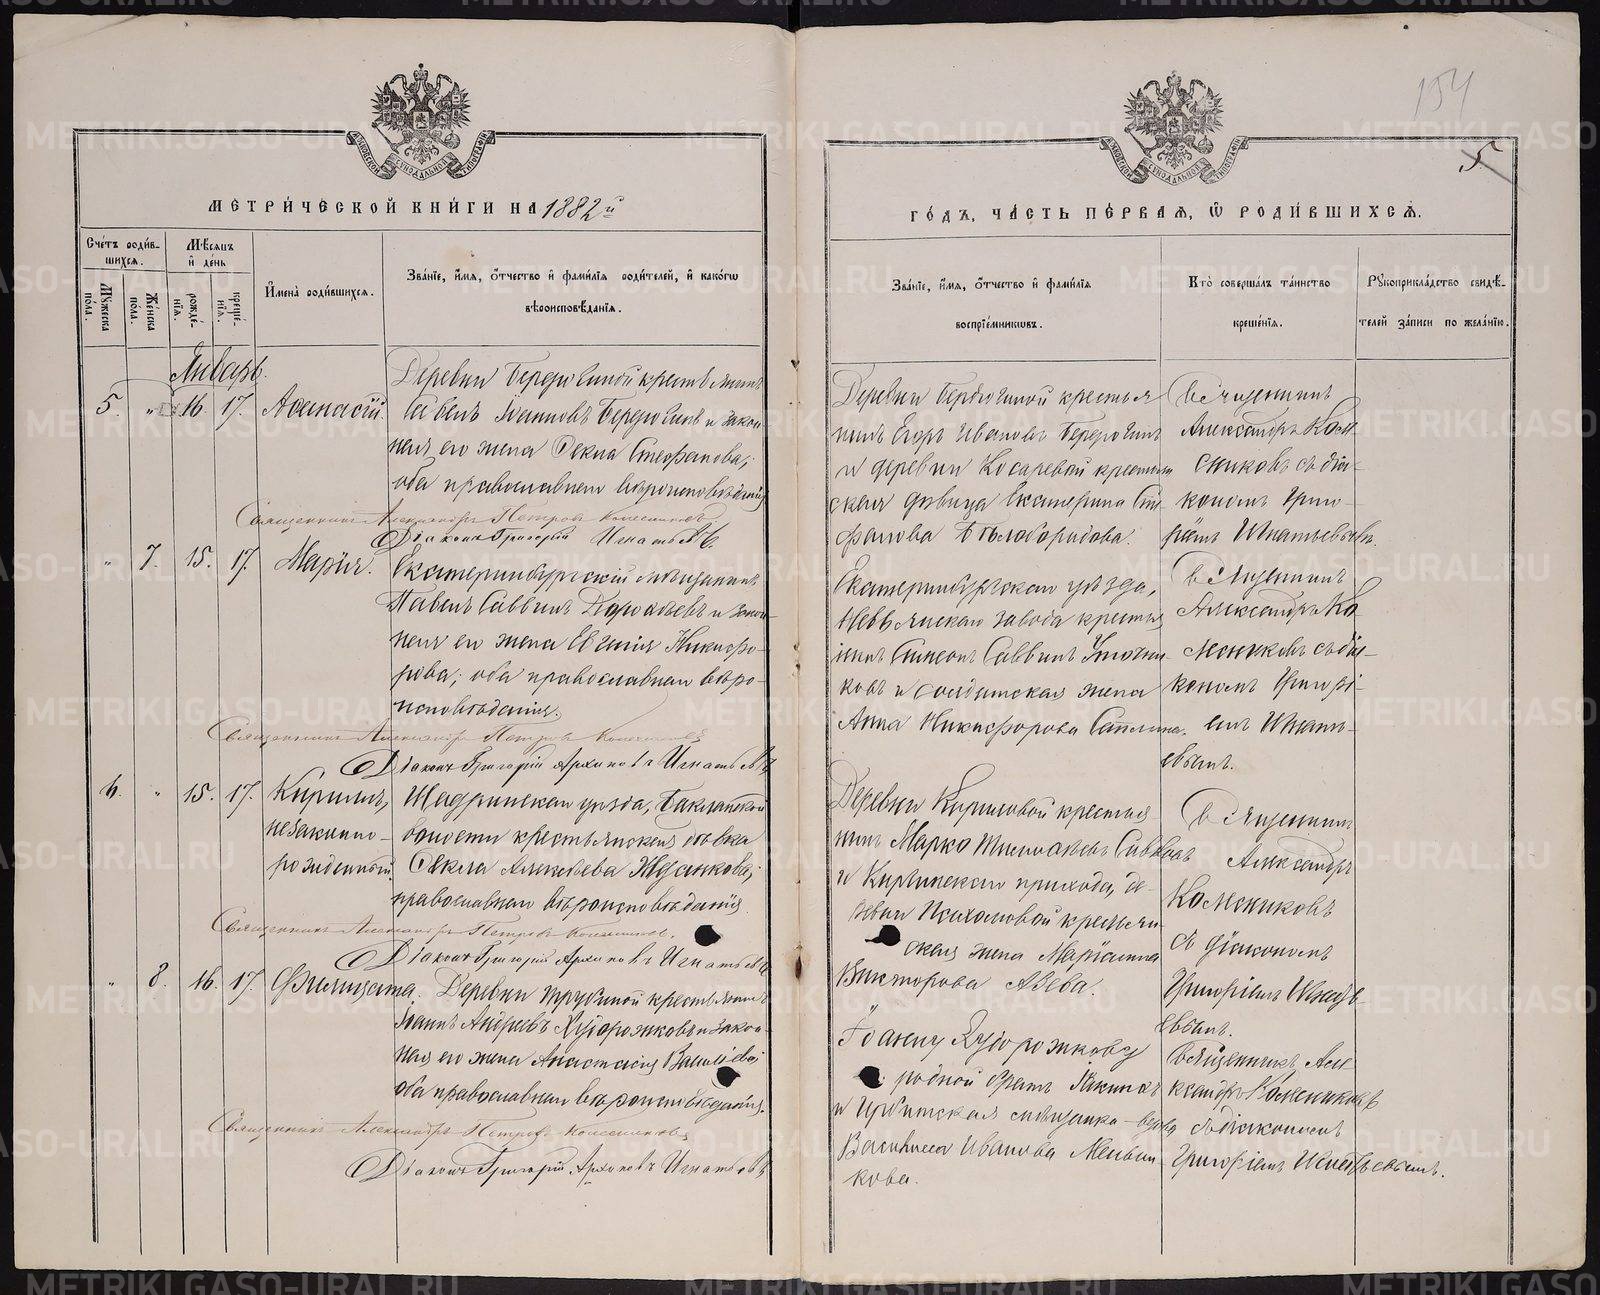 154
5
МЕТРИ́ЧЕСКОЙ КНИ́ГИ НА 1882й
ГО́ДЪ, ЧА́СТЬ ПЕ́РВАЯ, Ѡ РОДИ́ВШИХСЯ.
Сче́тъ роди́в-
шихся.
Му́жеска
по́ла.
Же́нска
пола.
Мѣсяцъ
и де́нь
рожде́-
нїя.
креще́-
нїя.
Имена̀ роди́вшихся.
Зва́нїе, и́мя, о́тчество и фами́лїя роди́телей, и како́гѡ
вѣроисповѣ́данїя.
Зва́нїе, и́мя, о́тчество и фами́лїя
воспрїе́мникѡвъ.
Кто̀ соверша́лъ та́инство
креще́нїя.
Рукоприкла́дство свидѣ́-
телей за́писи по жела́нїю.
Январь.
5. " 16. 17. Аѳанасій.
Деревни крестьянинъ
Іоанновъ и закон
ная его жена Ѳекла Стефанова;
оба православнаго вѣроисповѣданія
Священникъ Александръ Петровъ Колесниковъ
Діаконъ Григорій Игнатьевъ.
Деревни крестья
нинъ Егоръ Ивановъ
и деревни Косаревой крестьян
ская дѣвица Екатерина Сте
фанова Бѣлобородова.
Священникъ
Александръ Колѣ
сниковъ съ діа-
кономъ Григо-
ріемъ Игнатьевымъ.
" 7. 15. 17. Марія.
Екатеринбургскій мѣщанинъ
Павелъ Саввинъ Дорофѣевъ и закон-
ная его жена Евгенія Никифо-
рова; оба православнаго вѣро-
исповѣданія.
Священникъ Александръ Петровъ Колесниковъ
Діаконъ Григорій Архиповъ Игнатьевъ
Екатеринбургскаго уѣзда,
Невьянскаго завода крестья
нинъ Симеонъ Саввинъ
ковъ и солдатская жена
Анна Никифорова
Священникъ
Александръ Ко
лесниковъ съ діа-
кономъ Григорі-
емъ Игнать-
евымъ.
6. " 15. 17. Кириллъ,
незаконно-
рожденный.
Шадринскаго уѣзда,
волости крестьянская дѣвка
Ѳекла Алексѣева Жданкова;
православнаго вѣроисповѣданія.
Священникъ Александръ Петровъ Колесниковъ.
Діаконъ Григорій Архиповъ Игнатьевъ
Деревни Кориловой крестья
нинъ Марко
и прихода, де-
ревни крестьян
ская жена Маріамна
Викторова Азева.
Священникъ
Александръ
Колесниковъ
съ діакономъ
Григоріемъ Игнать-
евымъ.
" 8. 16. 17. Филицата.
Деревни Трубиной крестьянинъ
Іоаннъ Андреевъ Худорожковъ и закон
ная его жена Анастасія
оба православнаго вѣроисповѣданія.
Священникъ Александръ Петровъ Колесниковъ
Діаконъ Григорій Архиповъ Игнатьевъ
Іоанну Худорожкову
родной братъ
и Ирбитская мѣщанка
Василиса Иванова Меньши-
кова.
Священникъ Але
ксандръ Колесниковъ
съ діакономъ
Григоріемъ Игнатьевымъ.
METRIKI.GASO-URAL.RU